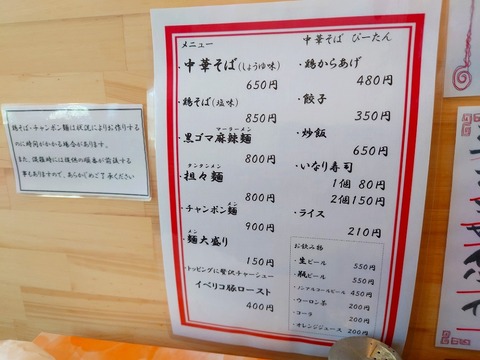 鶏そば・チャンポン麺は状況によりお作りする
のに時間がかかる場合があります。
また、混雑時には提供の順番が前後する
事もありますので、あらかじめご了承ください
メニュー
・中華そば(しょうゆ味)
650円
・鶏そば(塩味)
850円
マーラーメン
・黒ゴマ麻辣麺
800円
タンタンメン
・担々麺
800円
メン
・チャンポン麺
900円
メン
・麺大盛り
150円
・トッピングに贅沢チャーシュー
イベリコ豚ロースト
400円
中華そば ぴーたん
・鶏からあげ
480円
・餃子
350円
・炒飯
650円
・いなり寿司
1個 80円
2個150円
・ライス
210円
お飲み物
・生ビール 550円
・瓶ビール 550円
・ノンアルコールビール 450円
・ウーロン茶 200円
・コーラ 200円
・オレンジジュース 200円